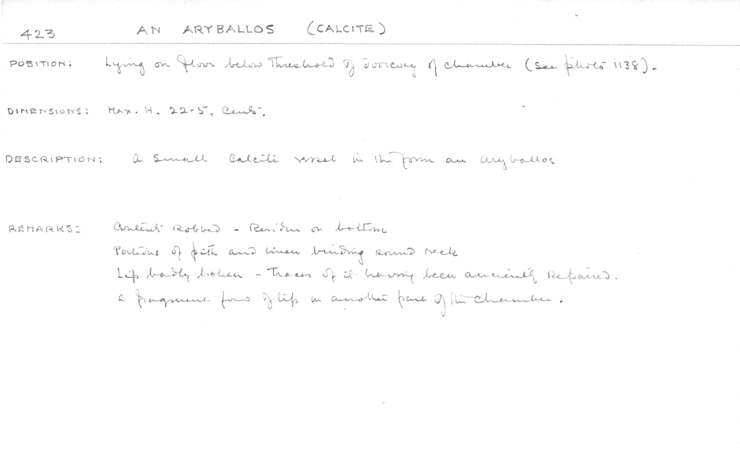 423 AN ARYBALLOS (CALCITE)
POSITION: Lying on floor below Threshold of doorway of chamber (See photo 1138).
DIMENSIONS: Max. H. 22-5, Cents.
DESCRIPTION: A small calcite vessel in the form an aryballos
REMARKS: Contents Robbed - Residue on bottom
Portions of pith and linen binding round neck
Lip badly broken - Traces of it having been anciently Repaired.
A fragment from of lip in another part of the chamber.